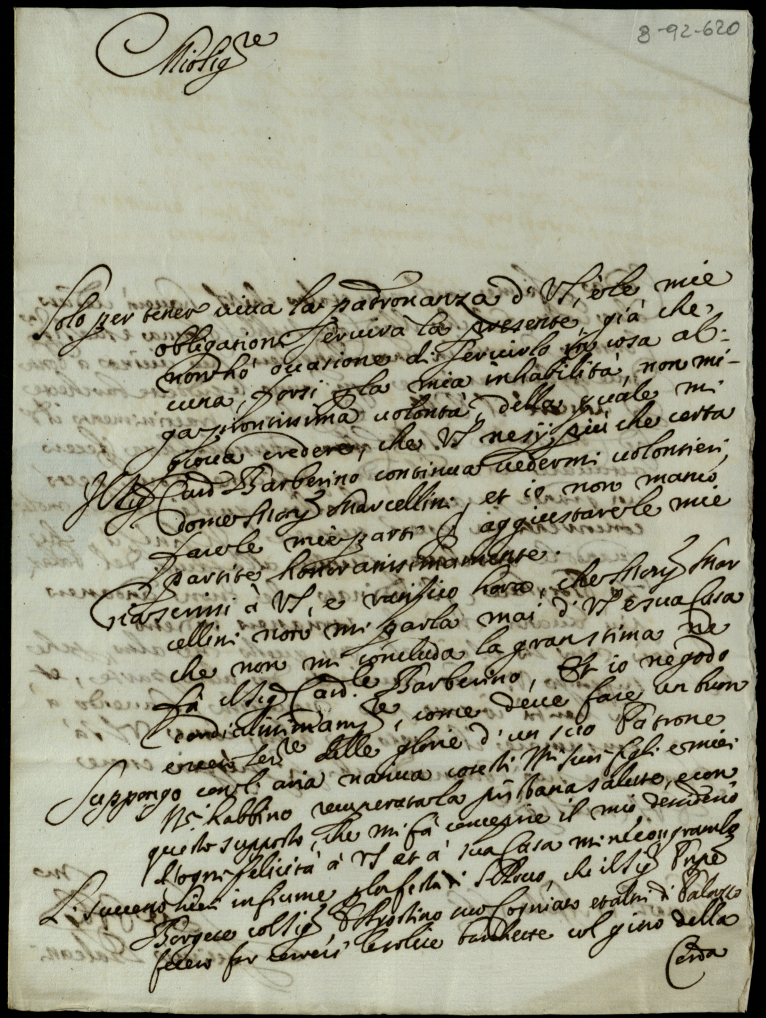 8-92-620
Mio Sig.re
Solo per tener viva la padronanza di VS, e le mie
obligationi servirà la presente, già che
non hò occasione di servirlo in cosa al-
cuna, forsi p la mia inhabilità, non mi-
ga prontissima volontà, della quale mi
giova credere, che VS ne sij più che certa
Il Sig Card Barberino continua vedermi volontieri,
come Mons Marcellini, et io non manco
far le mie parti p aggiustar le mie
partite honoratissimamente.
Già scrissi à VS, e ratifico hora, che Mons Mar
cellini non mi parla mai di VS e sua Casa
che non mi concluda la gran stima ne
fà il Sig Card.le Barberino, Et io ne godo
cordialissimam.te, come deve fare un buon
e vero ser.re delle glorie d'un suo Patrone
Suppongo con l'aria nativa cotesti Miei Sri figli e miei
habbino recuperata la pristina salute, e con
questo supposto, che mi fà concepire il mio desiderio
d'ogni felicità à VS et à sua Casa
successo hieri in fiume p la festa di S Rocco, che il Sig Prnpe
Borgese col Sig Agostino suo Cogniato et altri di Palazzo
fecero far le solite barchette col gioco della
Corda